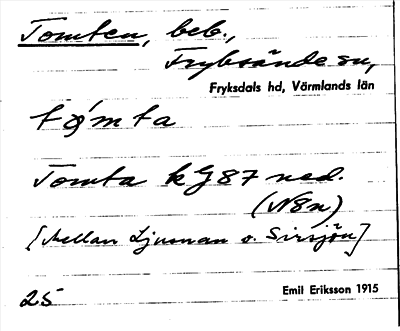 Tomten, beb.,
Fryksände sn,
Fryksdals hd, Värmlands län
tǿmta
Tomta k G87 ned.
(N8n)
[Mellan Ljusnan o. Sirsjön]
25
Emil Eriksson 1915